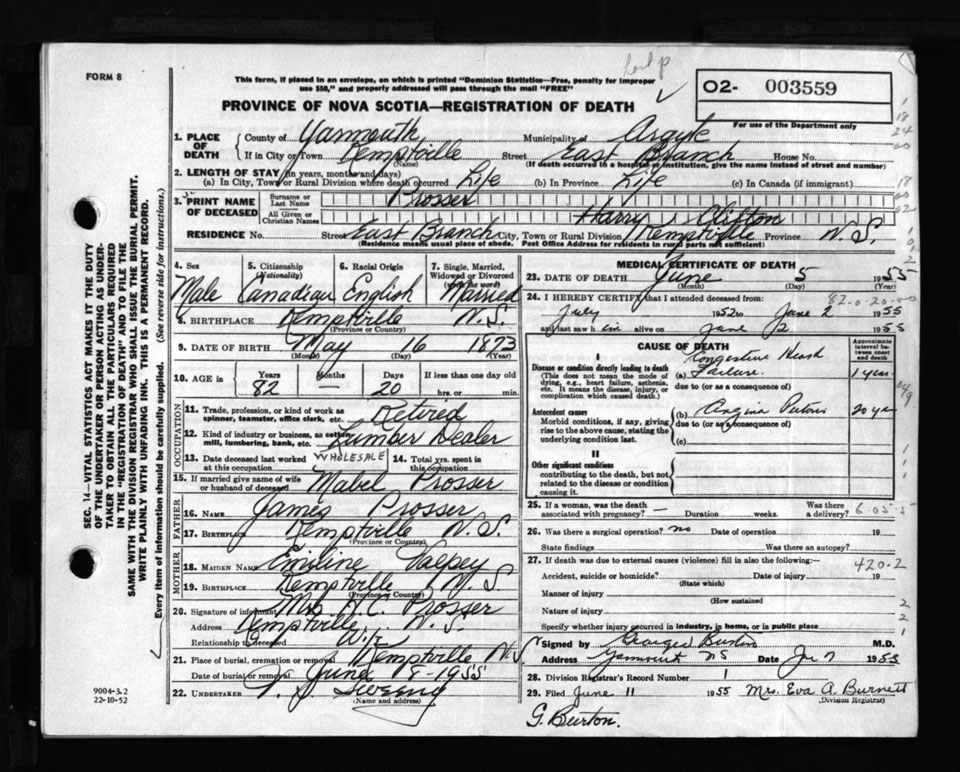 FORM 8
This form, if placed in an envelope, on which is printed "Dominion Statistics—Free, penalty for improper
use $50," and properly addressed will pass through the mail "FREE"
PROVINCE OF NOVA SCOTIA—REGISTRATION OF DEATH
O2- 003559
For use of the Department only
SEC. 14—VITAL STATISTICS ACT MAKES IT THE DUTY
OF THE UNDERTAKER OR PERSON ACTING AS UNDER-
TAKER TO OBTAIN ALL THE PARTICULARS REQUIRED
IN THE "REGISTRATION OF DEATH" AND TO FILE THE
SAME WITH THE DIVISION REGISTRAR WHO SHALL ISSUE THE BURIAL PERMIT.
WRITE PLAINLY WITH UNFADING INK. THIS IS A PERMANENT RECORD.
Every item of information should be carefully supplied. (See reverse side for instructions.)
1. PLACE OF DEATH County of Yarmouth Municipality of Argyle
If in City or Town Kemptville Street East Branch House No.
(Name) (If death occurred in a hospital or institution, give the name instead of street and number)
2. LENGTH OF STAY (in years, months and days)
(a) In City, Town or Rural Division where death occurred Life (b) In Province Life (c) In Canada (if immigrant)
3. PRINT NAME OF DECEASED Surname or Last Name Prosser
All Given or Christian Names Harry Clifton
RESIDENCE No. Street East Branch City, Town or Rural Division Kemptville Province N.S.
(Residence means usual place of abode. Post Office Address for residents in rural parts not sufficient)
4. Sex 5. Citizenship (Nationality) 6. Racial Origin 7. Single, Married, Widowed or Divorced (write the word)
Male Canadian English Married
8. BIRTHPLACE Kemptville N.S.
(Province or Country)
9. DATE OF BIRTH May 16 1873
(Month) (Day) (Year)
10. AGE in Years Months Days If less than one day old
82 — 20 hrs. or min.
OCCUPATION
11. Trade, profession, or kind of work as spinner, teamster, office clerk, etc. Retired
12. Kind of industry or business, as cotton mill, lumbering, bank, etc. Lumber Dealer
13. Date deceased last worked at this occupation WHOLESALE 14. Total yrs. spent in this occupation
15. If married give name of wife or husband of deceased Mabel Prosser
FATHER
16. NAME James Prosser
17. BIRTHPLACE Kemptville N.S.
(Province or Country)
MOTHER
18. MAIDEN NAME Emiline
19. BIRTHPLACE Kemptville N.S.
(Province or Country)
20. Signature of informant Mrs H.C. Prosser
Address Kemptville N.S.
Relationship to deceased Wife
21. Place of burial, cremation or removal Kemptville N.S.
Date of burial or removal June 8-1955
22. UNDERTAKER Sweeny
(Name and address)
9004-3.2
22-10-52
MEDICAL CERTIFICATE OF DEATH
23. DATE OF DEATH June 5 1955
(Month) (Day) (Year)
24. I HEREBY CERTIFY that I attended deceased from:
82-0-20-00
July 1952 to June 2 1955
and last saw him alive on June 2 1955
CAUSE OF DEATH
Approximate interval between onset and death
I
Disease or condition directly leading to death (a) Congestive Heart Failure. 1 year
(This does not mean the mode of dying, e.g., heart failure, asthenia, etc. It means the disease, injury, or complication which caused death.)
due to (or as a consequence of)
Antecedent causes (b) Angina Pectoris 20 yrs
Morbid conditions, if any, giving rise to the above cause, stating the underlying condition last.
due to (or as a consequence of)
(c)
II
Other significant conditions
contributing to the death, but not related to the disease or condition causing it.
25. If a woman, was the death associated with pregnancy? — Duration weeks. Was there a delivery? 6-05-5
26. Was there a surgical operation? no Date of operation 19
State findings Was there an autopsy?
27. If death was due to external causes (violence) fill in also the following:—
420-2
Accident, suicide or homicide? Date of injury 19
(State which)
Manner of injury
(How sustained)
Nature of injury
Specify whether injury occurred in industry, in home, or in public place
Signed by George Burton M.D.
Address Yarmouth NS Date Ju 7 1955
28. Division Registrar's Record Number 1
29. Filed June 11 1955 Mrs. Eva A. Burnett
(Division Registrar)
G. Burton.